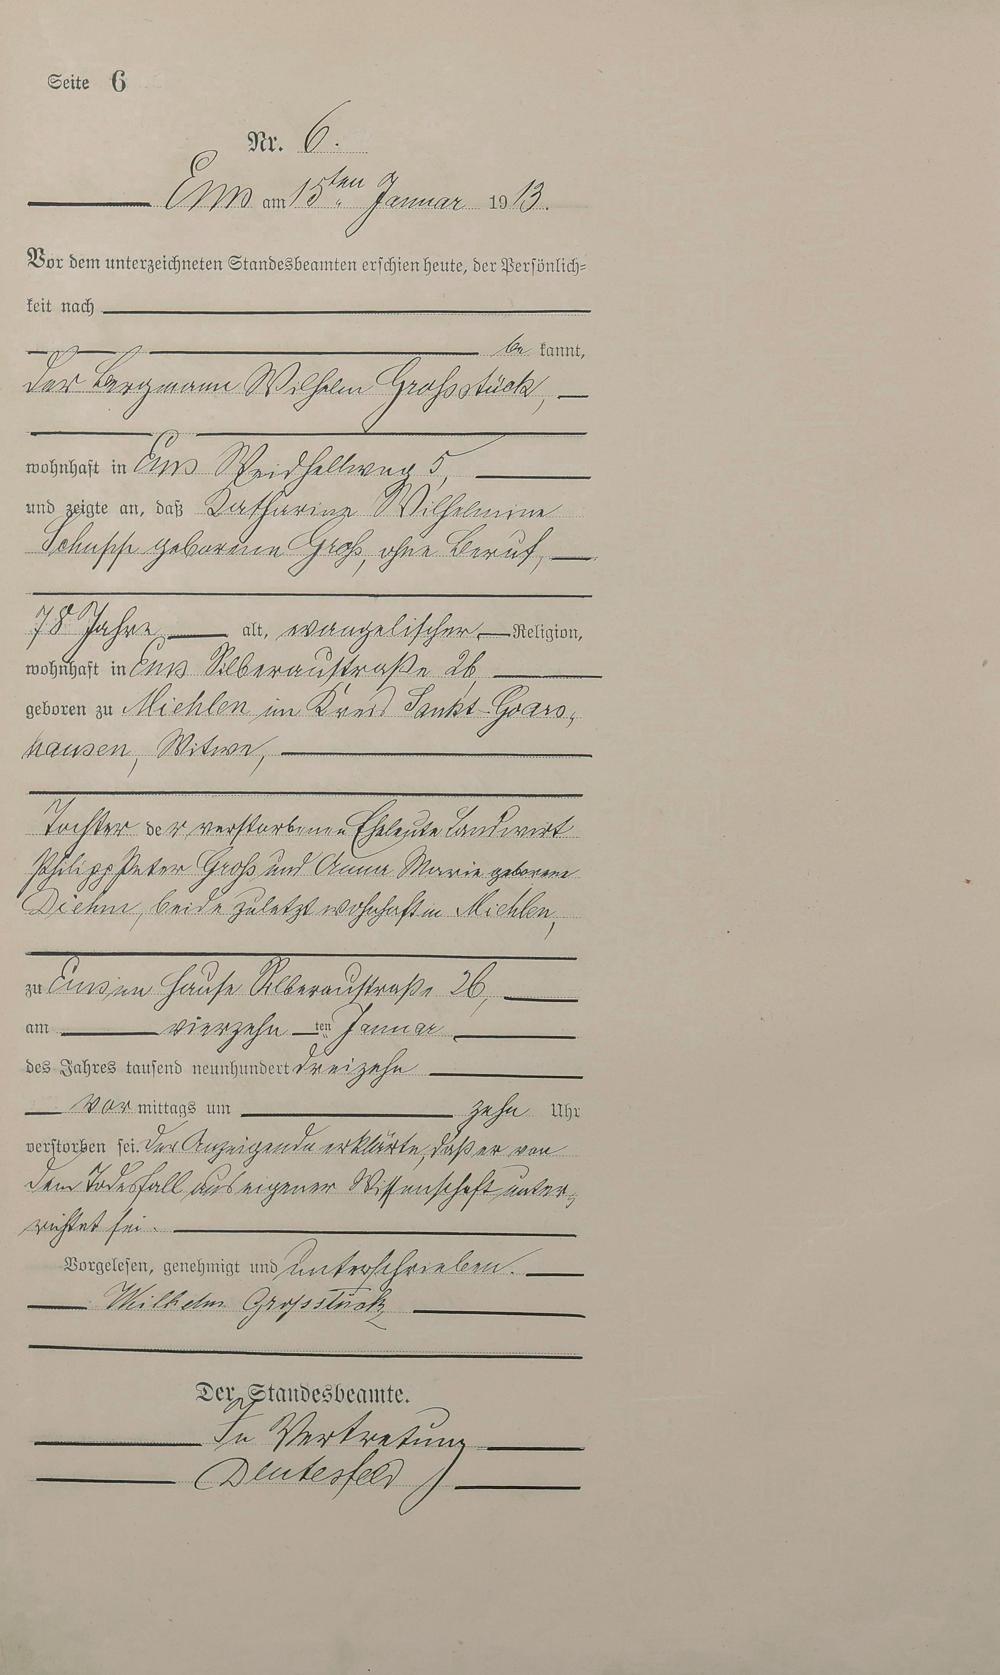 Seite 6
Nr. 6.
Ems am 15ten Januar 1913.
Vor dem unterzeichneten Standesbeamten erschien heute, der Persönlich-
keit nach
be kannt,
der Bergmann Wilhelm Grossstück,
wohnhaft in Ems 5,
und zeigte an, daß Katharine Wilhelmine
Schupp geborene Groß, ohne Beruf,
78 Jahre alt, evangelischer Religion,
wohnhaft in Ems Silberaustraße 26,
geboren zu Miehlen im Kreis Sankt-Goars-
hausen, Witwe,
Tochter der verstorbenen Eheleute Landwirt
Philipp Peter Groß und Anna Marie geborene
Diehm, beide zuletzt wohnhaft in Miehlen,
zu Ems im Hause Silberaustraße 26,
am vierzehnten Januar
des Jahres tausend neunhundert dreizehn
Vor mittags um zehn Uhr
verstorben sei. Der Anzeigende erklärte, daß er von
dem Todesfall aus eigener Wissenschaft unter-
richtet sei.
Vorgelesen, genehmigt und unterschrieben.
Wilhelm Grossstück
Der Standesbeamte.
In Vertretung